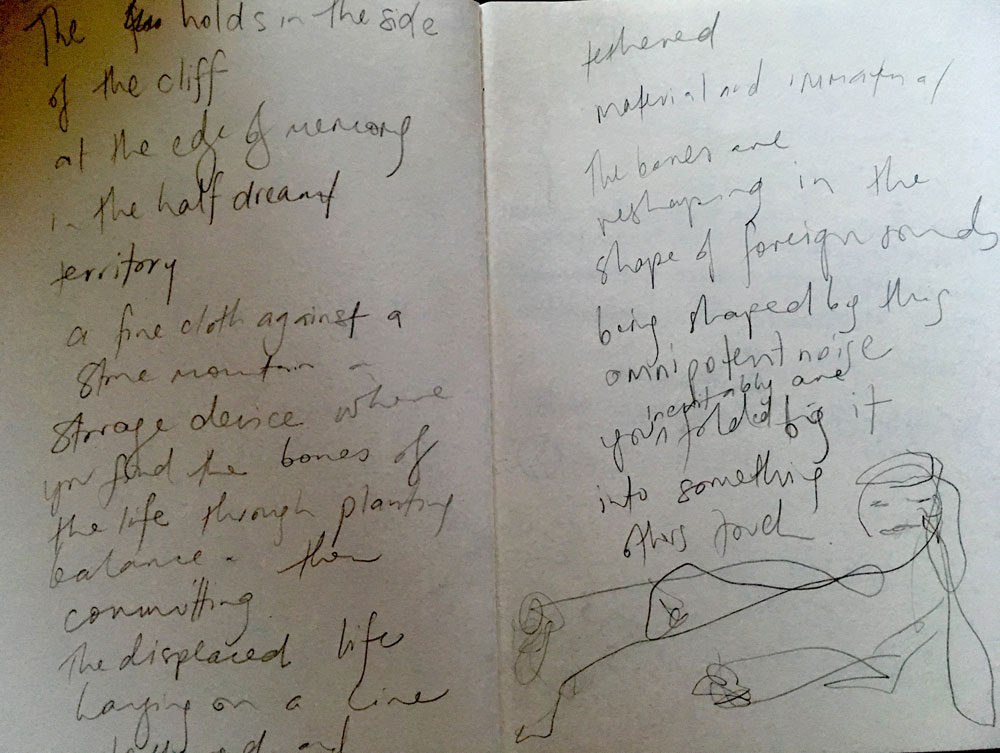 The holds in the side
of the cliff
at the edge of memory
in the half dreamt
territory
a fine cloth against a
stone mountain a
storage device where
you find the bones of
the life through planting
balance. then
committing
The displaced life
hanging on a line
and
tethered
material and immaterial
The bones are
reshaping in the
shape of foreign sounds
being shaped by this
omnipotent noise
inevitably are
you folded by it
into something
others touch.